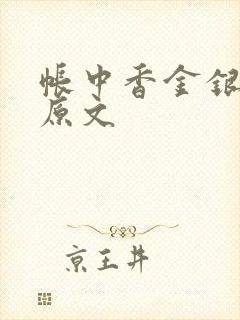 帐中香金银
原文
京王井